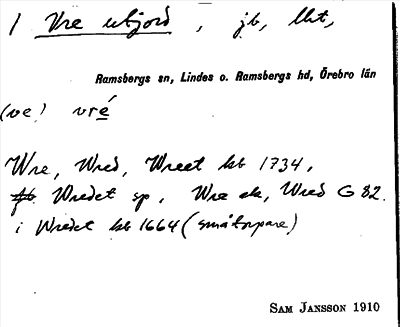 1 Vre utjord, jb, lht,
Ramsbergs sn, Lindes o. Ramsbergs hd, Örebro län
(ve) vré
Wre, Wred, Wreet kb 1734,
Wredet sp, Wre ek, Wred G 82.
i Wredet kb 1664 (småtorpare)
SAM JANSSON 1910